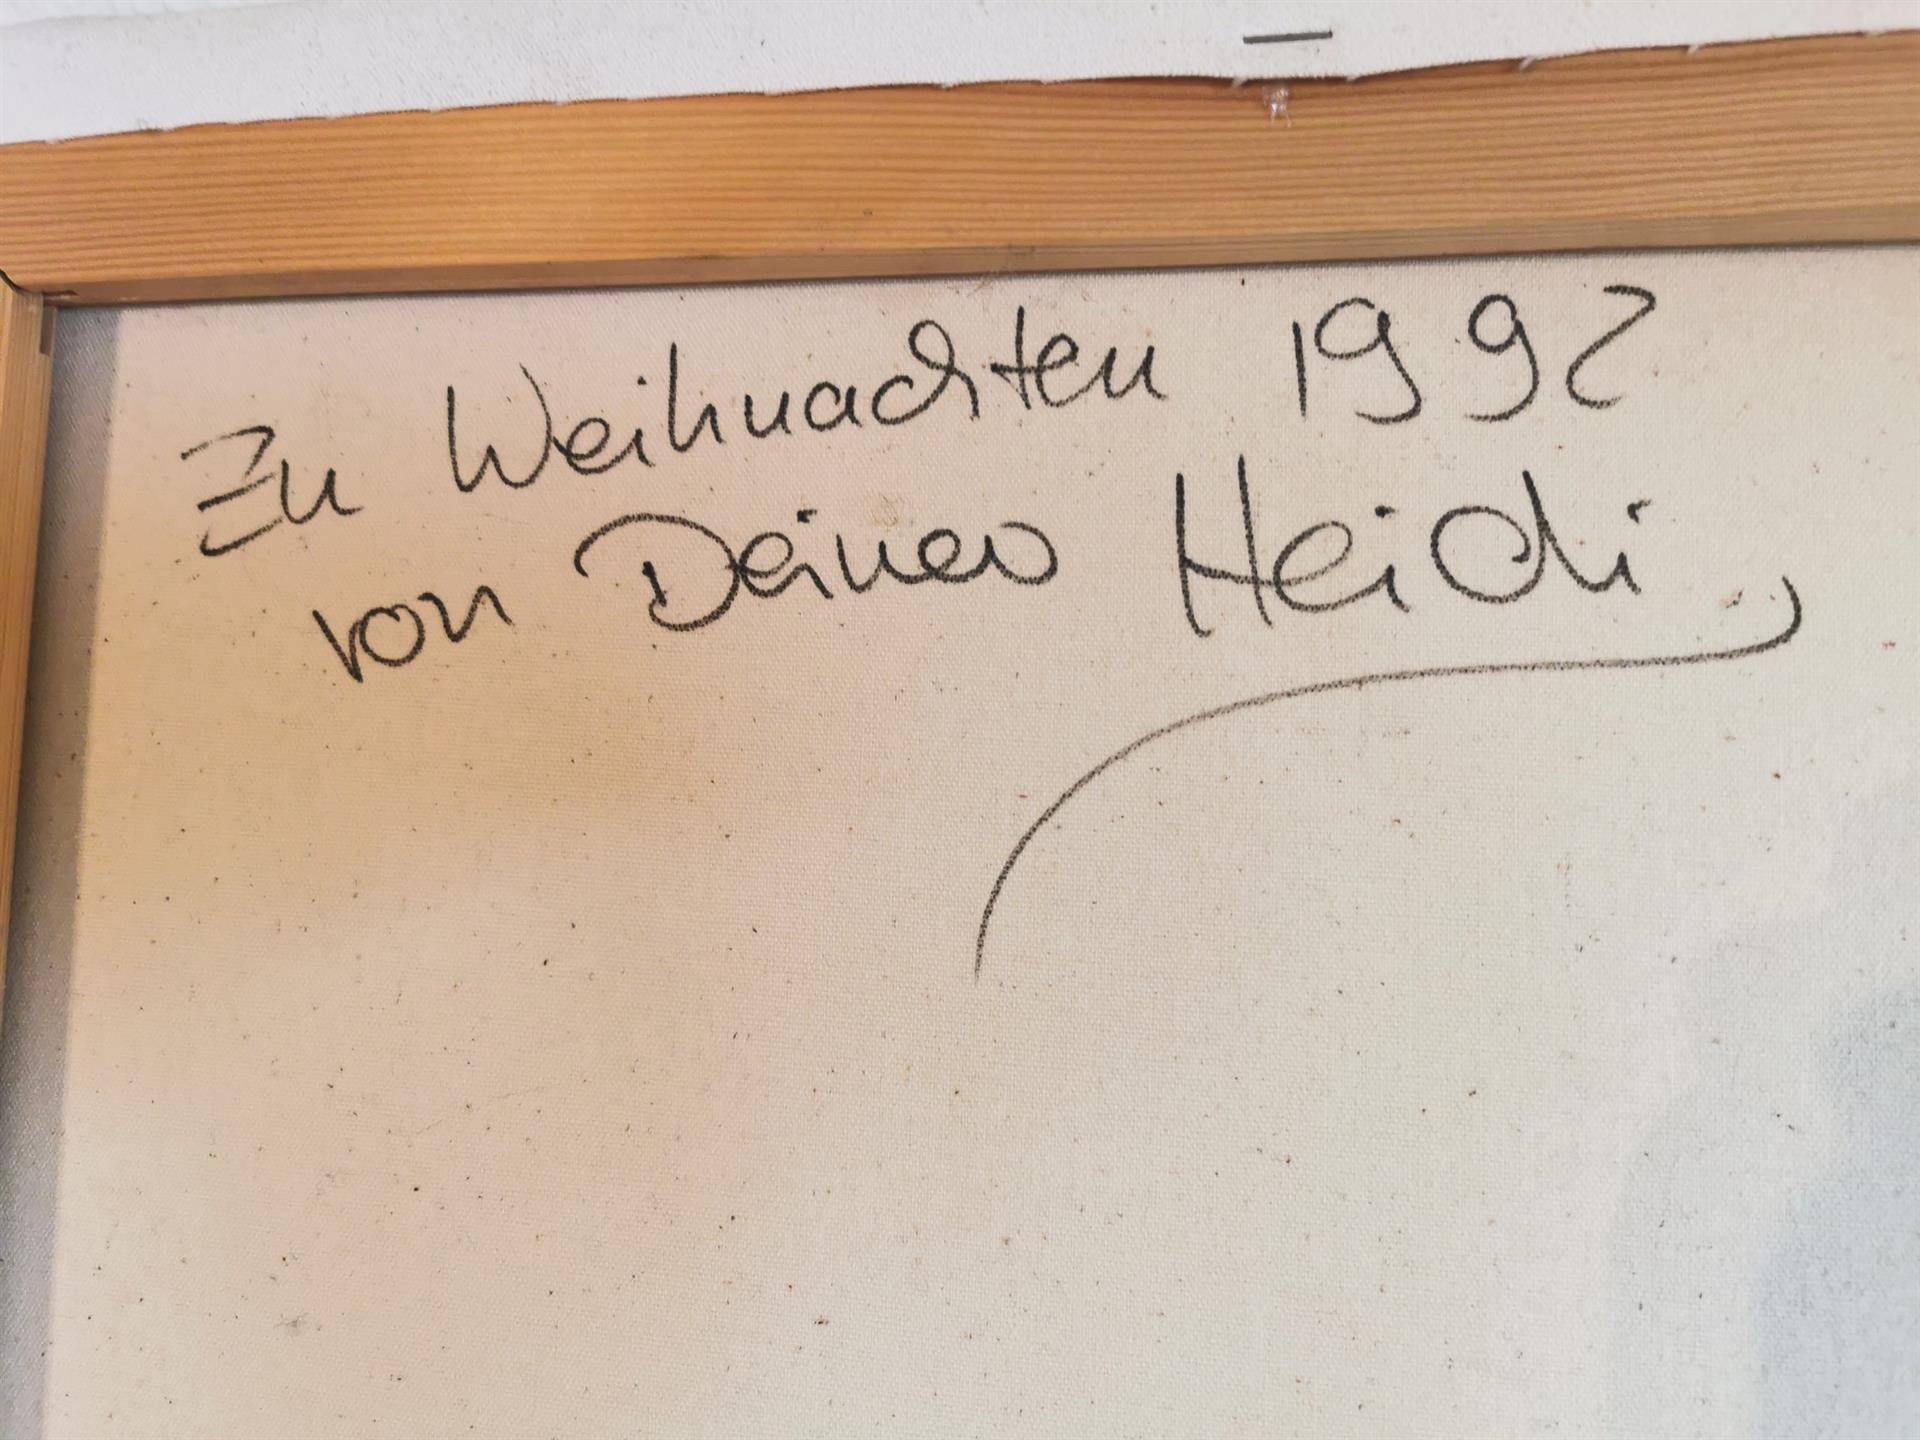 Zu Weihnachten 1992
von Deiner Heidi